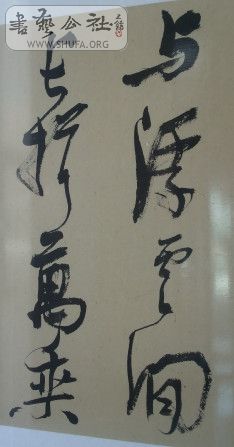 書藝公社
WWW.SHUFA.ORG
与浮云间
长揖萬乘